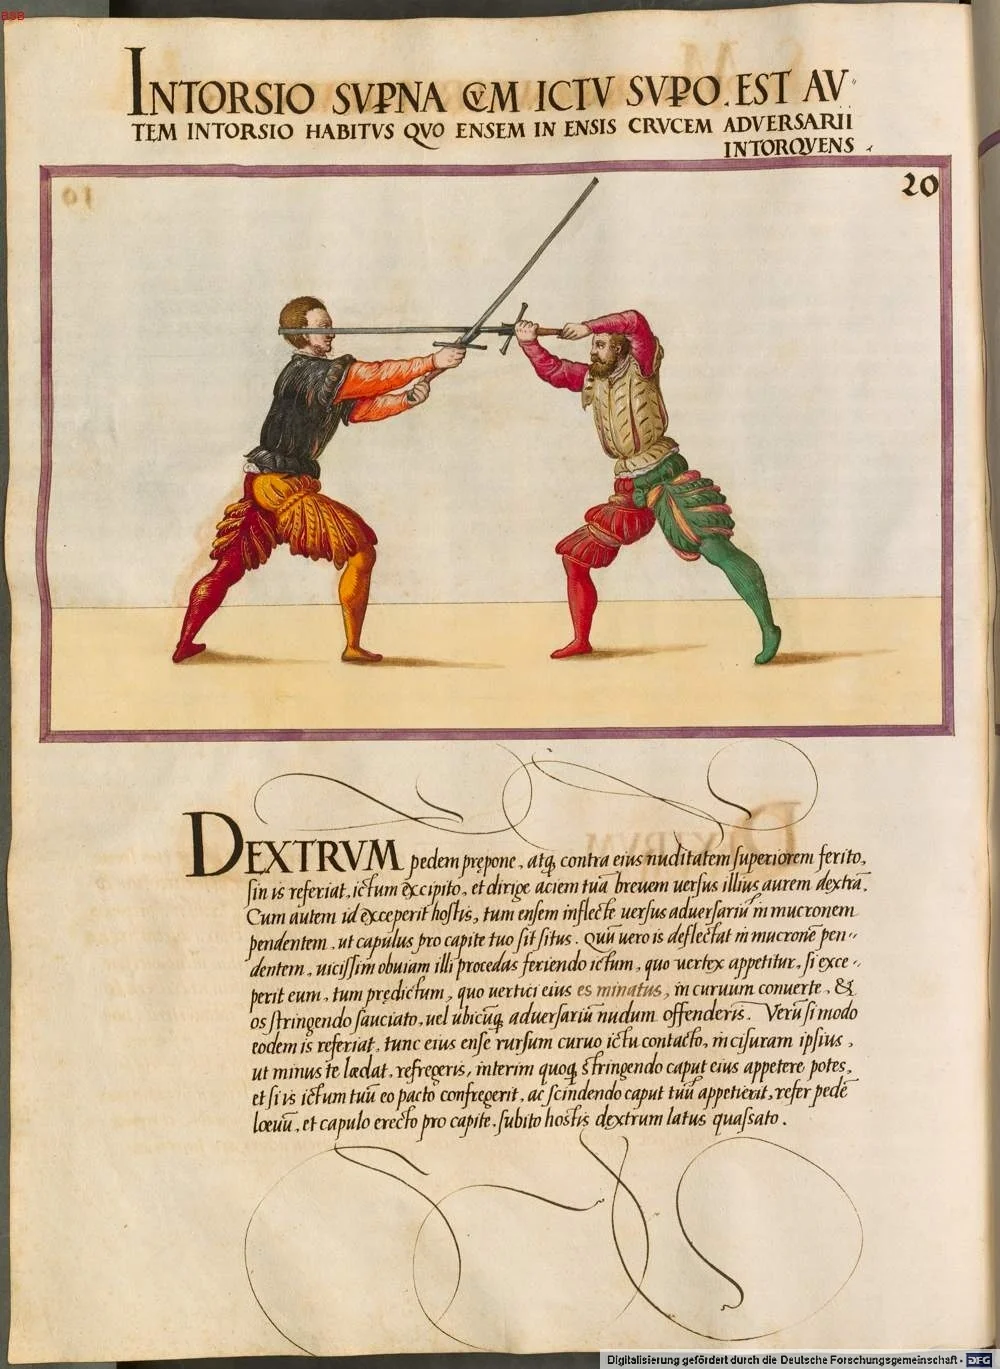 BSB
INTORSIO SVP̱NA CVM ICTV SVP̱O. EST AV-
TEM INTORSIO HABITVS QVO ENSEM IN ENSIS CRVCEM ADVERSARII
INTORQVENS.
20
DEXTRVM pedem prępone, atq, contra eius nuditatem superiorem ferito,
sin is referiat, ictum excipito, et dirige aciem tuā breuem uersus illius aurem dextrā.
Cum autem id exceperit hostis, tum ensem inflecte uersus aduersariū in mucronem
pendentem, ut capulus pro capite tuo sit situs. Quū uero is deflectat in mucronē pen-
dentem, uicissim obuiam illi procedas feriendo ictum, quo uertex appetitur, si exce-
perit eum, tum prędictum, quo uertici eius es minatus, in curuum conuerte, &
os stringendo sauciato, uel ubicūq, aduersariū nudum offenderis. Verū si modo
eodem is referiat, tunc eius ense rursum curuo ictu contacto, incisuram ipsius,
ut minus te lædat, refregeris, interim quoq, stringendo caput eius appetere potes,
et si is ictum tuū eo pacto confregerit, ac scindendo caput tuū appetierit, refer pedē
lœuū, et capulo erecto pro capite, subito hostis dextrum latus quassato.
Digitalisierung gefördert durch die Deutsche Forschungsgemeinschaft - DFG